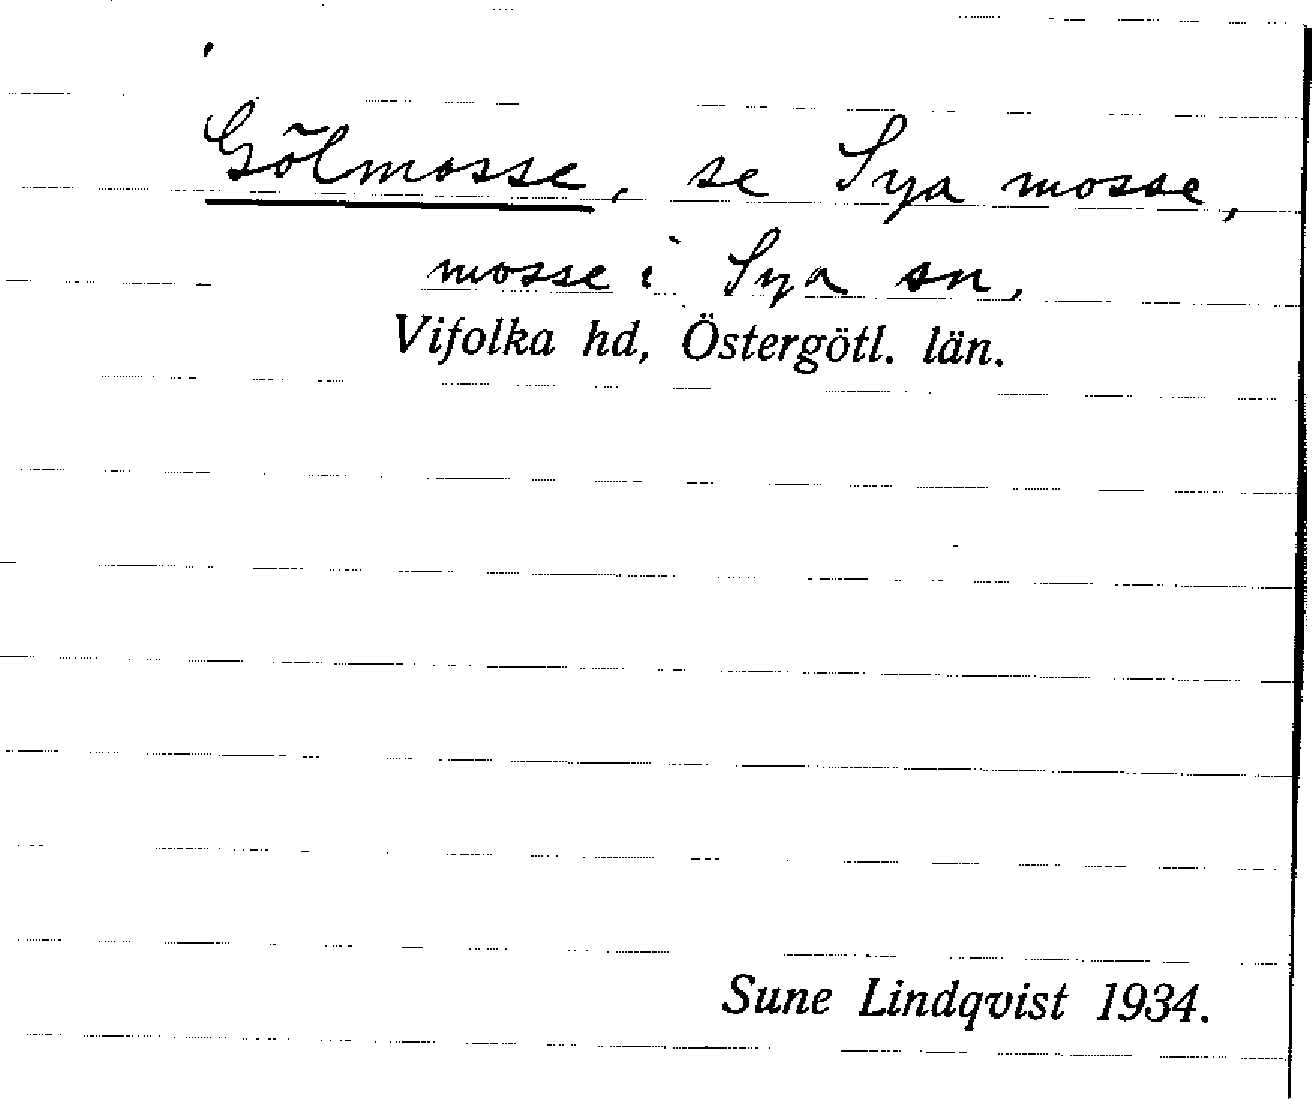 Gölmosse, se Sya mosse,
mosse i Sya sn,
Vifolka hd, Östergötl. län.
Sune Lindqvist 1934.